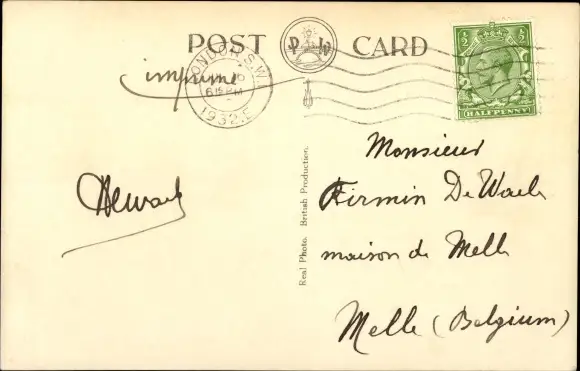 POST CARD
imprimé
LONDON. S.W.1
6 15 PM
1932
HALFPENNY
Real Photo. British Production.
Monsieur
Firmin De Waele
maison de Melle
Melle (Belgium)